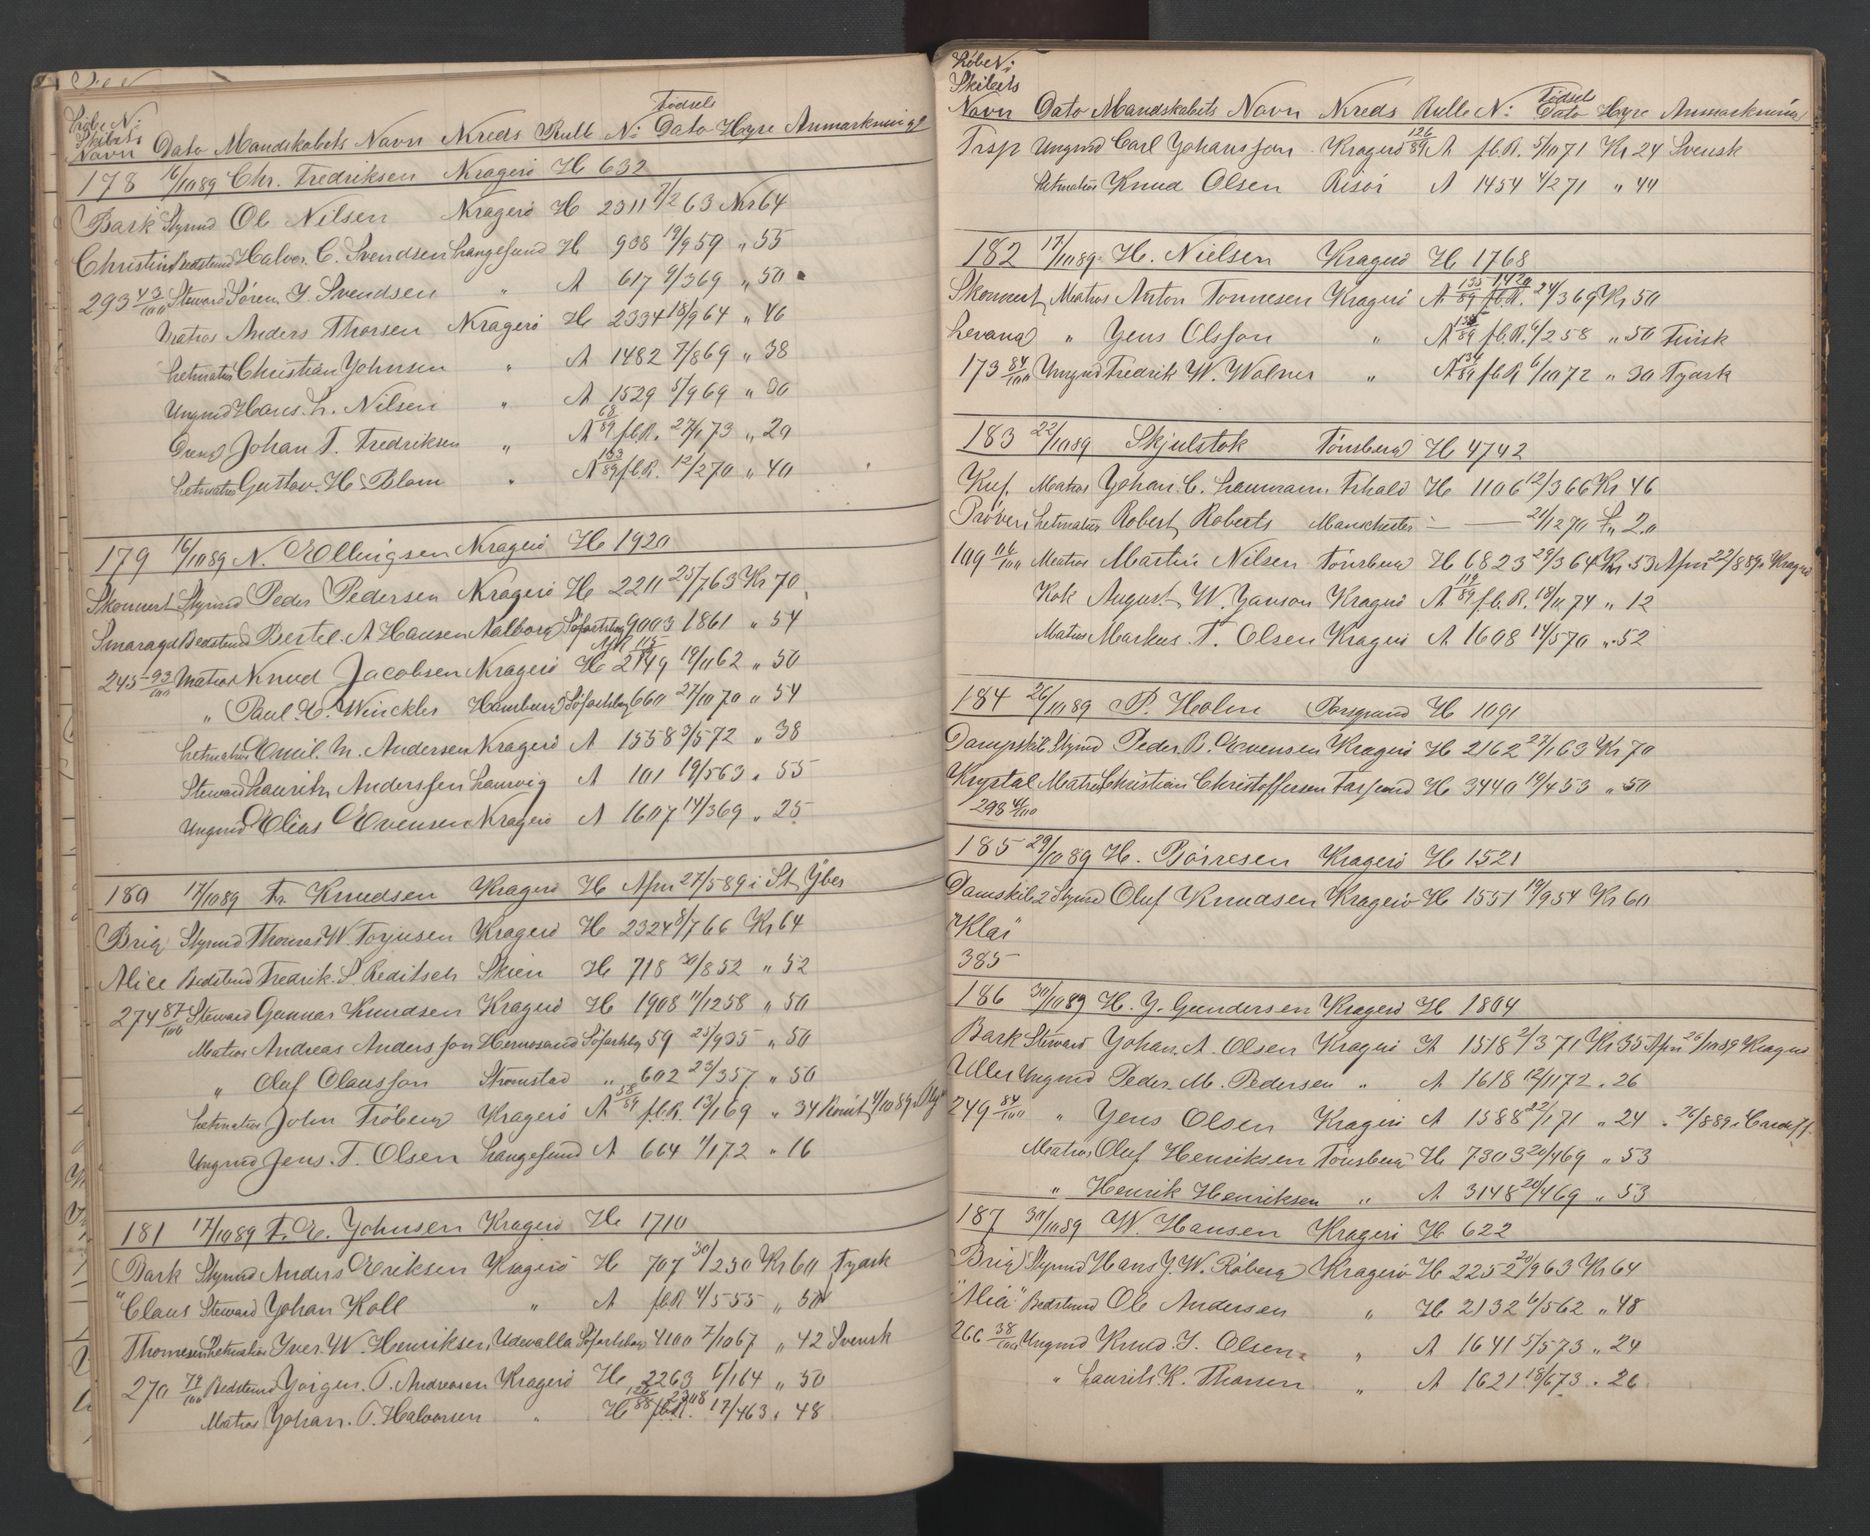 Løbe N:
Skibets
Navn Dato Mandskabets Navn Kreds Rulle N: Fødsels Dato Hyre Anmærkning
178 16/10 89 Chr. Fredriksen Kragerö H 632
Bark Styrmd Ole Nilsen Kragerö H 2311 7/2 63 Kr 64
Christine Bedstmd Halvor C. Svendsen Langesund H 908 19/9 59 " 55
293 43/100 Steward Søren J. Svendsen " A 617 9/3 69 " 50
Matros Anders Thorsen Kragerö H 2334 18/9 64 " 46
Letmatros Christian Johnsen " A 1482 7/8 69 " 38
Ungmd Hans L. Nilsen " A 1529 5/9 69 " 30
Dreng Johan F. Fredriksen " A 68/89 fbR. 27/1 73 " 20
Letmatros Gustav H. Blom " A 133/89 fbR. 12/2 70 " 40
179 16/10 89 N. Ellingsen Kragerö H 1920
Skonnert Styrmd Peder Pedersen Kragerö H 2211 25/7 63 Kr 70
Smaragd Bedstmd Bertel A Hansen Aalborg Söfartsbog 9003 1861 " 54
245 93/100 Matros Knud Jacobsen Kragerö H 2149 19/11 62 " 50
" Paul E. Winckler Hamburg Söfartsbog 660 27/10 70 " 54
Letmatros Emil M. Andersen Kragerö A 1558 3/5 72 " 38
Steward Lauritz Anderssen Laurvig A 101 19/5 63 " 55
Ungmd Elias Evensen Kragerö A 1607 14/3 69 " 25
180 17/10 89 Fr Knudsen Kragerö H Afm 27/5 89 i St Ybes
Brig Styrmd Thomas W. Torjusen Kragerö H 2324 8/7 66 Kr 64
Alice Bedstmd Fredrik S. Reditsch Skien H 718 30/8 52 " 52
274 87/100 Steward Gunnar Knudsen Kragerö H 1908 11/12 58 " 50
Matros Andreas Andersson Hernosand Söfartsbog 59 25/9 35 " 50
" Oluf Olausson Strømstad " 602 23/3 57 " 50
Letmatros John Fröberg Kragerö A 58/89 fbR. 13/1 69 " 34
Ungmd Jens T. Olsen Langesund A 664 1/1 72 " 16
181 17/10 89 F. E. Johnsen Kragerö H 1710
Bark Styrmd Anders Eriksen Kragerö H 707 30/12 30 Kr 60 Tydsk
"Claus Steward Johan Koll " A fbR 4/5 55 " 50
Thomesen" Letmatros Iver W. Henriksen Udevalla Söfartsbog 4100 7/10 67 " 42 Svensk
270 79/100 Bedstmd Jørgen T. Andreasen Kragerö H 2263 5/1 64 " 50
Matros Johan T. Halvorsen " H 126/88 fbR. 2308 17/4 63 " 48
Løbe N:
Skibets
Navn Dato Mandskabets Navn Kreds Rulle N: Fødsels Dato Hyre Anmærkning
Trsp Ungmd Carl Johansson Kragerö 126/89 A fbR. 5/10 71 Kr 24 Svensk
Letmatros Knud Olsen Risör A 1454 4/2 71 " 40
182 17/10 89 H. Nielsen Kragerö H 1768
Skonnert Matros Anton Tonnesen Kragerö A 135/89 fbR. 1420 24/3 69 Kr 50
Levanad " Jens Olsson " A 89 fbR. 6/2 58 " 50 Finsk
173 84/100 Ungmd Fredrik W. Wolner " A 134/89 fbR 6/10 72 " 30 Tydsk
183 22/10 89 Skjulstok Tönsberg H 4742
Kuf. Matros Johan C. Laumann Frhald H 1106 12/3 66 Kr 46
Pröven Letmatros Robert Roberts Manchester — — 21/12 70 £ 2.0
109 06/100 Matros Martin Nilsen Tönsberg H 6823 29/3 64 Kr. 53 Afm 22/8 89 Kragerö
Kok August W. Janson Kragerö A 119/89 fbR. 18/11 74 " 12
Matros Markus T. Olsen Kragerö A 1608 14/5 70 " 52
184 26/10 89 P. Holm Porsgrund H 1091
Dampskib Styrmd Peder B. Evensen Kragerö H 2162 23/1 63 Kr 70
Krystal Matros Christian Christoffersen Farsund H 3440 19/4 53 " 50
298 4/100
185 29/10 89 H. Börresen Kragerö H 1521
Damskib 2 Styrmd Oluf Knudsen Kragerö H 1551 19/9 54 Kr 60
"Klar"
385
186 30/10 89 H. J. Gundersen Kragerö H 1804
Bark Steward Johan A. Olsen Kragerö A 1518 2/3 71 Kr 35 Afm 26/10 89 Kragerö
Uller Ungmd Peder M. Pedersen " A 1618 12/11 72 " 26
249 84/100 " Jens Olsen Kragerö A 1588 22/1 71 " 24 " 26/8 89 i Cardiff
Matros Oluf Henriksen Tönsberg H 7303 20/4 69 " 53
" Henrik Henriksen " A 3148 20/4 69 " 53
187 30/10 89 W. Hansen Kragerö H 622
Brig Styrmd Hans J. W. Röberg Kragerö H 2252 20/9 63 Kr 64
"Alice" Bedstmd Ole Andersen " H 2132 6/5 62 " 48
266 38/100 Ungmd Knud J. Olsen " A 1641 5/5 73 " 24
" Laurits K. Thorsen " A 1621 18/6 73 " 26